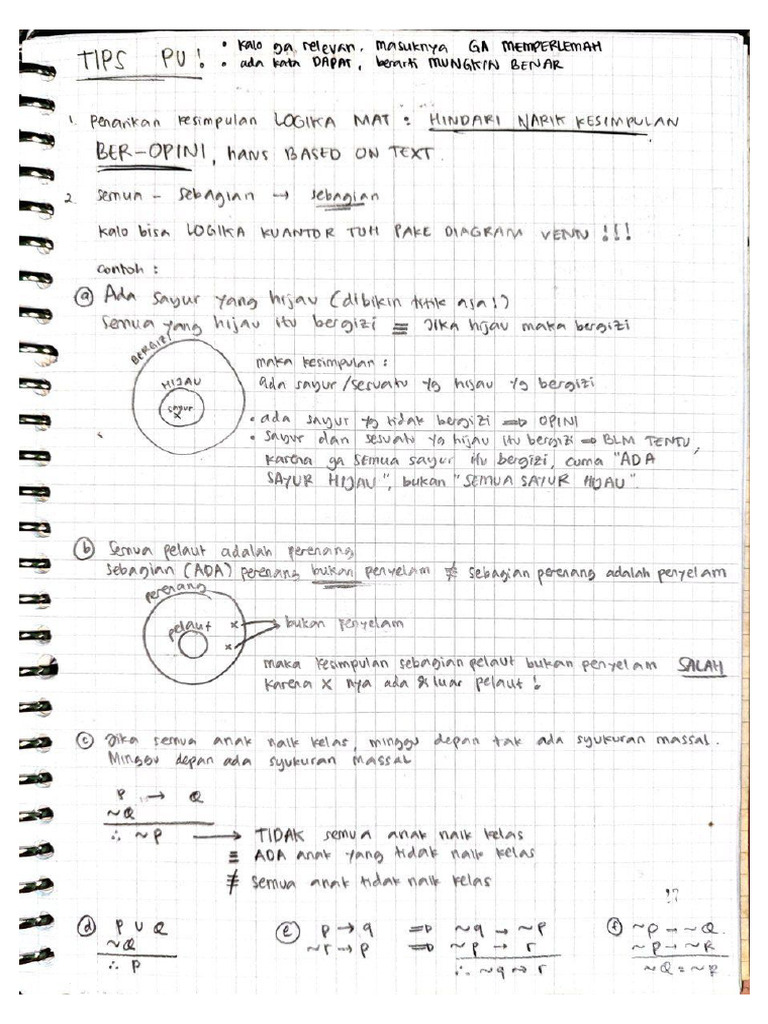 TIPS PU!
• kalo ga relevan, masuknya GA MEMPERLEMAH
• ada kata DAPAT, berarti MUNGKIN BENAR
1. Penarikan kesimpulan LOGIKA MAT : HINDARI NARIK KESIMPULAN
BER-OPINI, hans BASED ON TEXT.
2. semua - sebagian → sebagian
kalo bisa LOGIKA KUANTOR TUH PAKE DIAGRAM VENN !!!
contoh :
ⓐ Ada sayur yang hijau (dibikin titik aja!)
semua yang hijau itu bergizi ≡ jika hijau maka bergizi
BERGIZI
HIJAU
sayur
x
maka kesimpulan :
ada sayur/sesuatu yg hijau yg bergizi
• ada sayur yg tidak bergizi ⇒ OPINI
• sayur dan sesuatu yg hijau itu bergizi ⇒ BLM TENTU,
karena ga semua sayur itu bergizi, cuma "ADA
SAYUR HIJAU", bukan "SEMUA SAYUR HIJAU"
ⓑ Semua pelaut adalah perenang
sebagian (ADA) perenang bukan penyelam ≢ sebagian perenang adalah penyelam
perenang
pelaut
x
x
bukan penyelam
maka kesimpulan sebagian pelaut bukan penyelam SALAH
karena x nya ada di luar pelaut !
ⓒ Jika semua anak naik kelas, minggu depan tak ada syukuran massal.
Minggu depan ada syukuran massal
P → Q
~Q
∴ ~P → TIDAK semua anak naik kelas
≡ ADA anak yang tidak naik kelas
≢ semua anak tidak naik kelas
ⓓ P U Q
~Q
∴ P
ⓔ p → q ⇒ ~q → ~p
~r → p ⇒ ~p → r
∴ ~q → r
!?
ⓕ ~P → ~Q.
~P → ~R
~Q = ~R